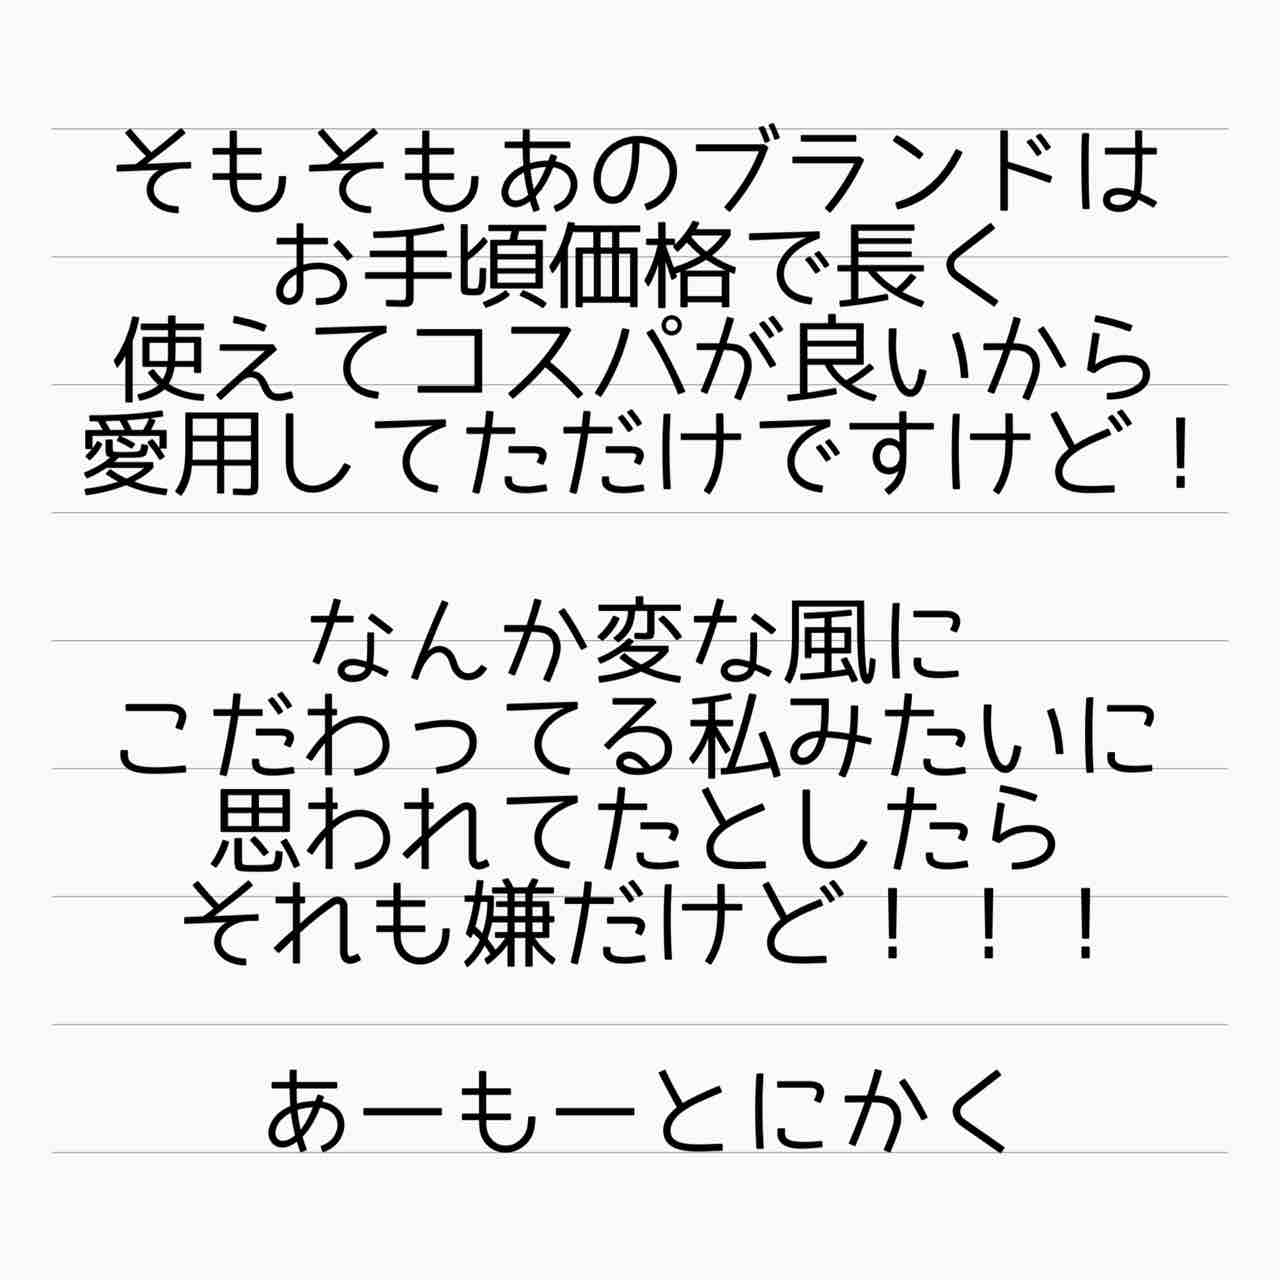 そもそもあのブランドは
お手頃価格で長く
使えてコスパが良いから
愛用してただけですけど！
なんか変な風に
こだわってる私みたいに
思われてたとしたら
それも嫌だけど！！！
あーもーとにかく